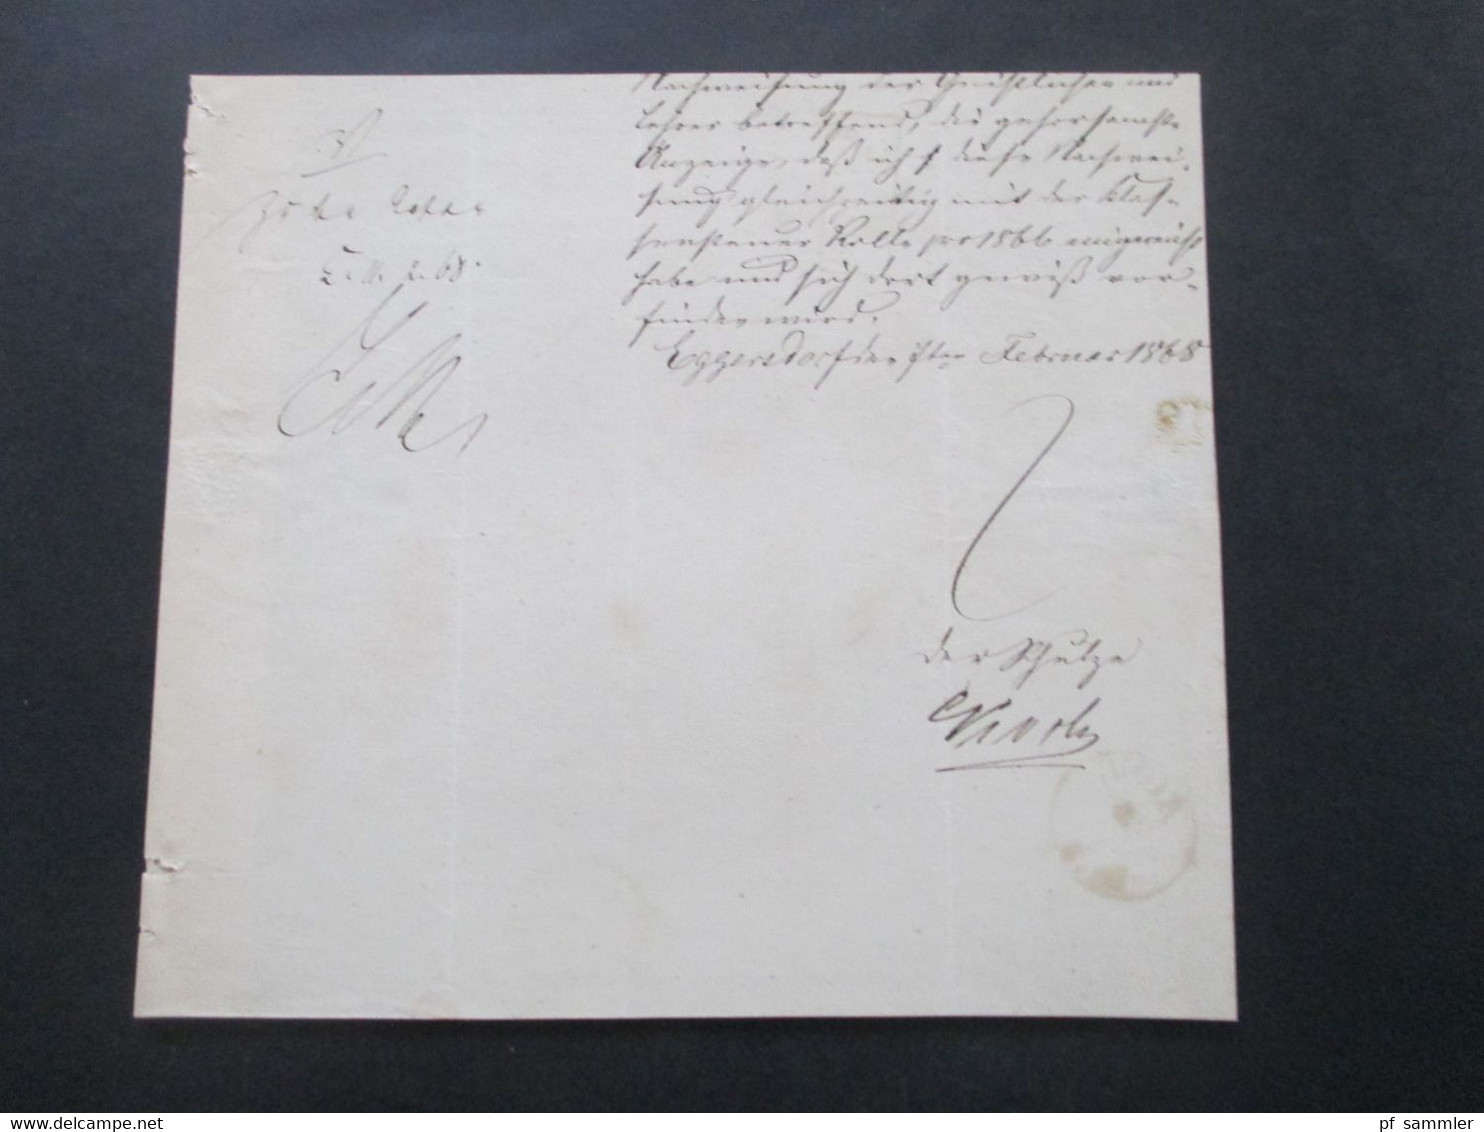 Nachweisung der Geistlichen und
Lehrer betreffend, die gehorsamste
Anzeige, daß ich diese Nachwei-
sung gleichzeitig mit der Klas-
sensteuer Rolle pro 1866 eingereicht
habe und sich dort gewiß vor-
finden wird.
Eggersdorf den ten Februar 1868
V
zu den Acten
68.
der Schulze
pf sammler